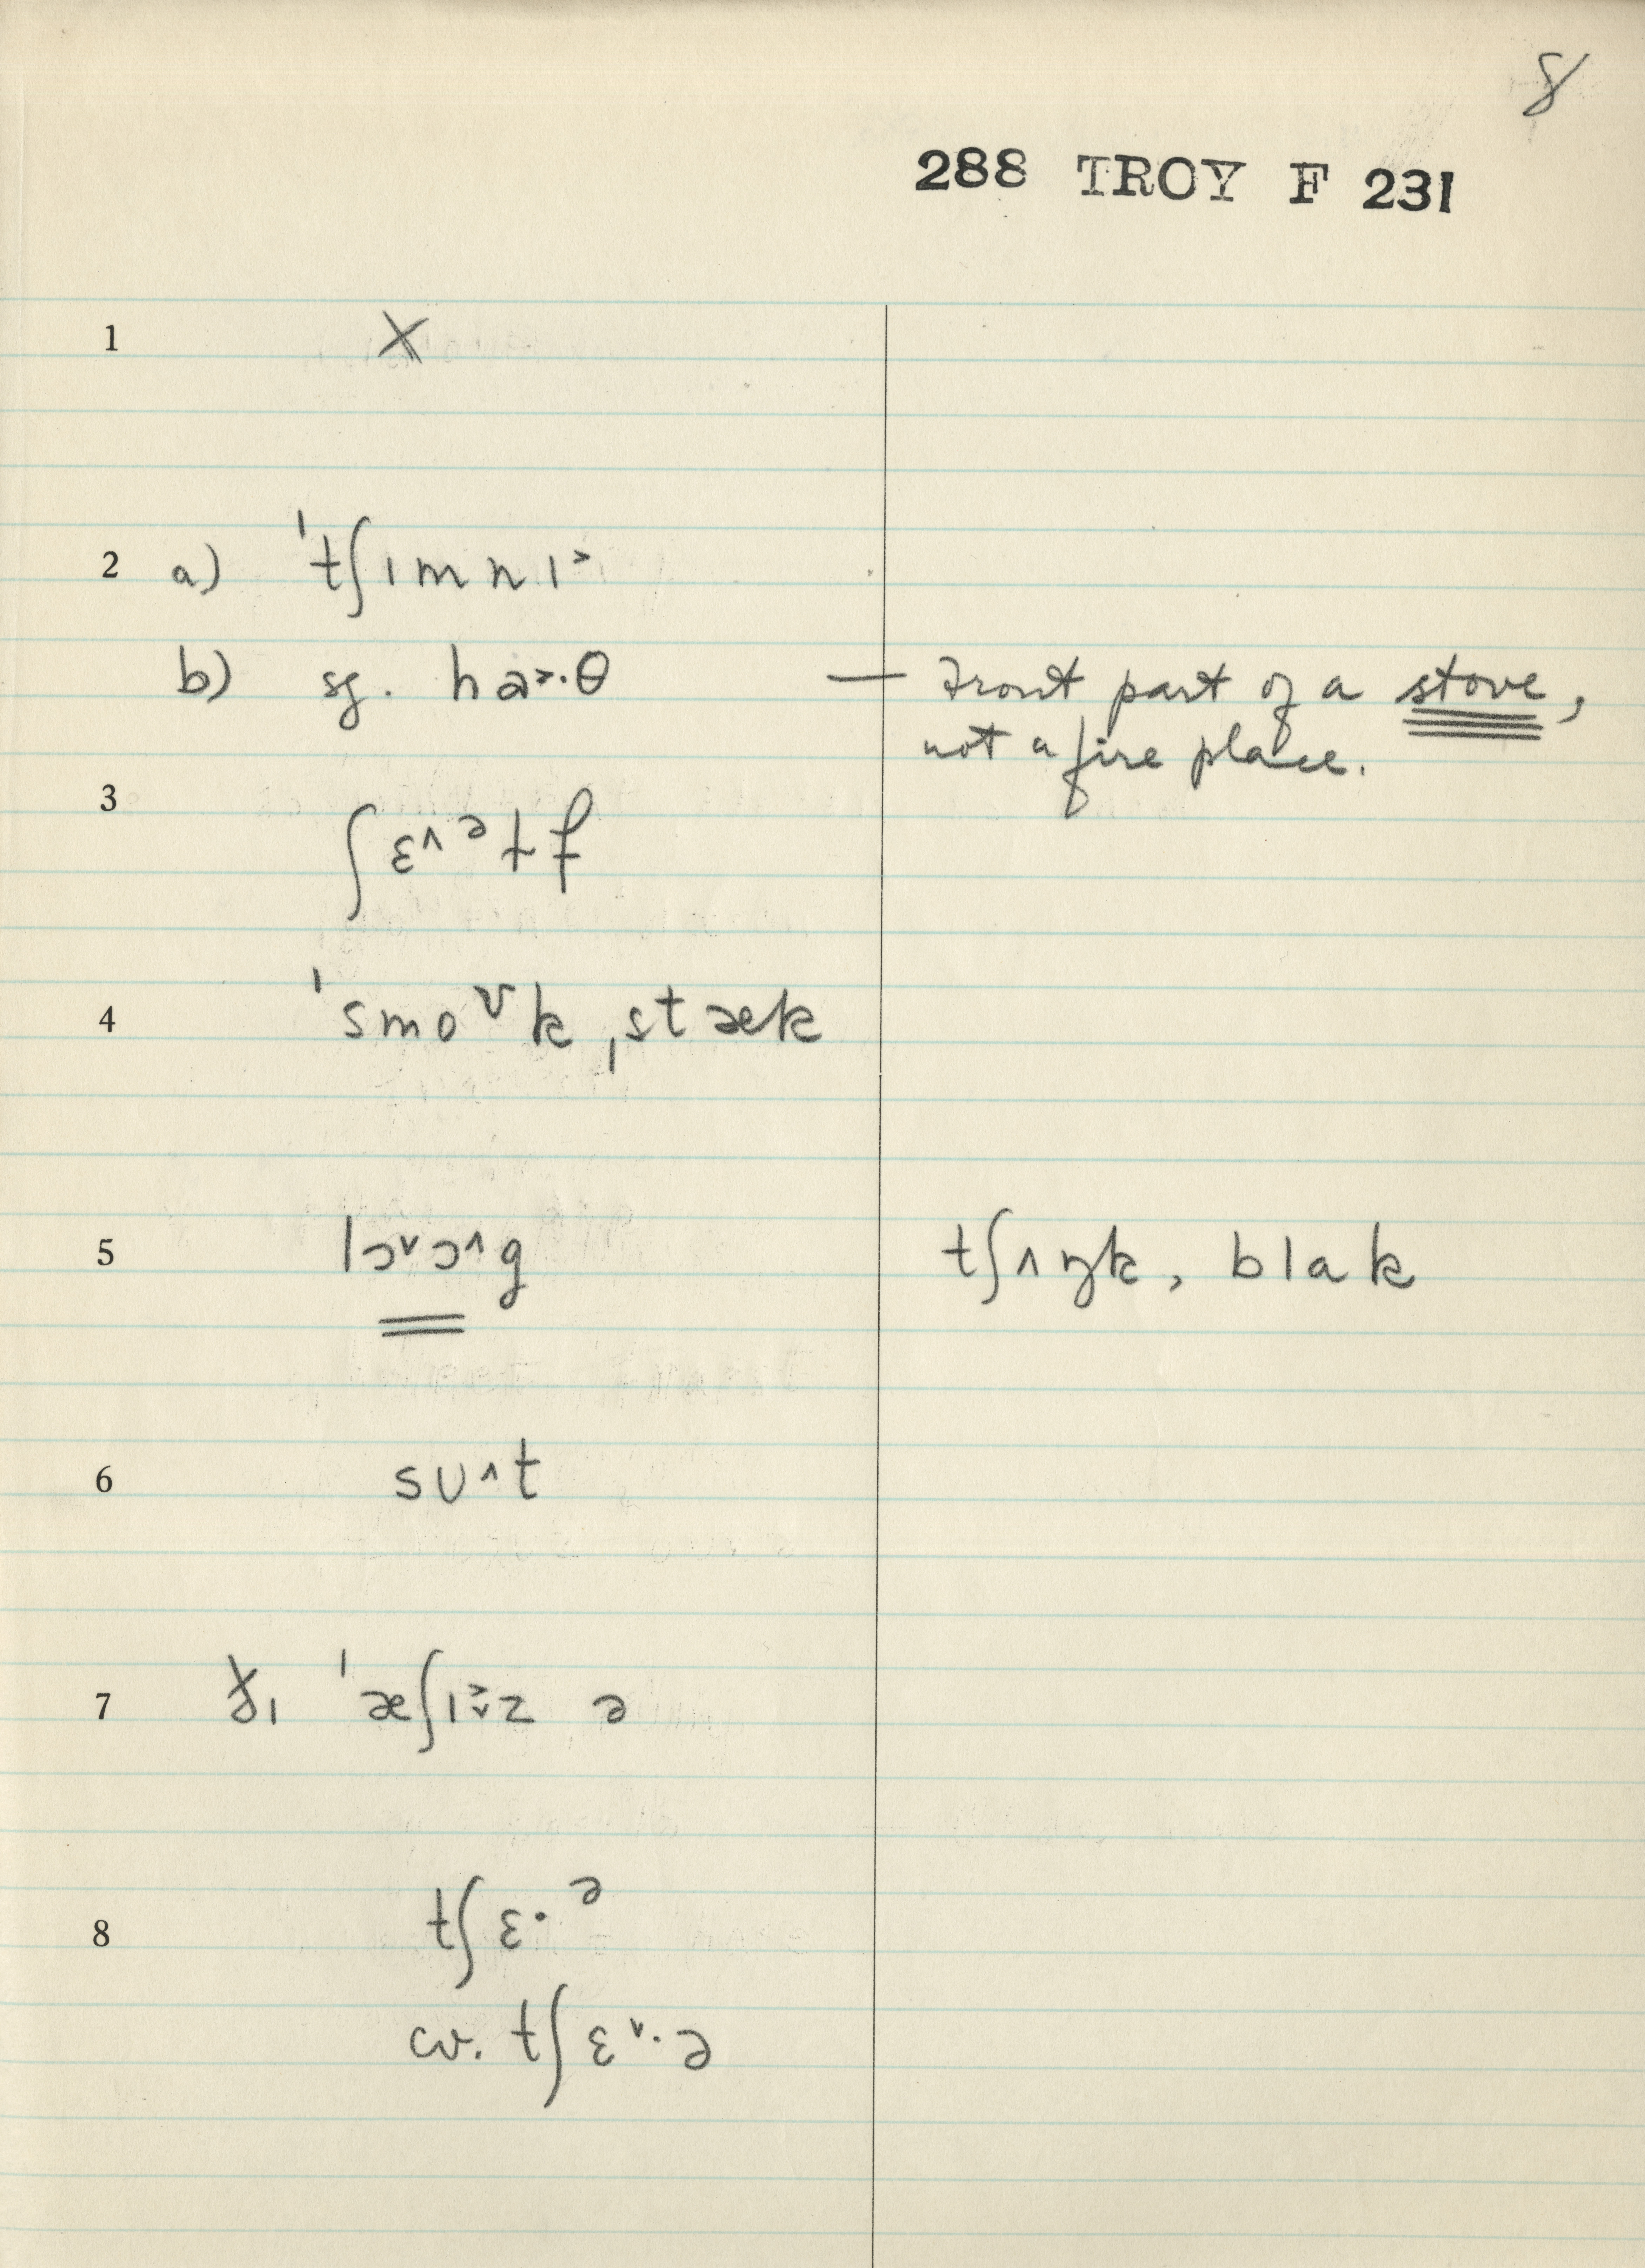 8
288 TROY F 231
1 X
2 a) ˈtʃɪmnɪ˃
b) sg. ha˃·θ — Front part of a stove,
not a fire place.
3 ʃɛ˄ᵊtf
4 ˈsmoᶷkˌstæk
5 lɔ˅ɔ˄g tʃʌŋk, blak
6 sᴜ˄t
7 ðɪ ˈæʃɪ˃˅z ə
8 tʃɛ·ᵊ
cv. tʃɛ˅·ə